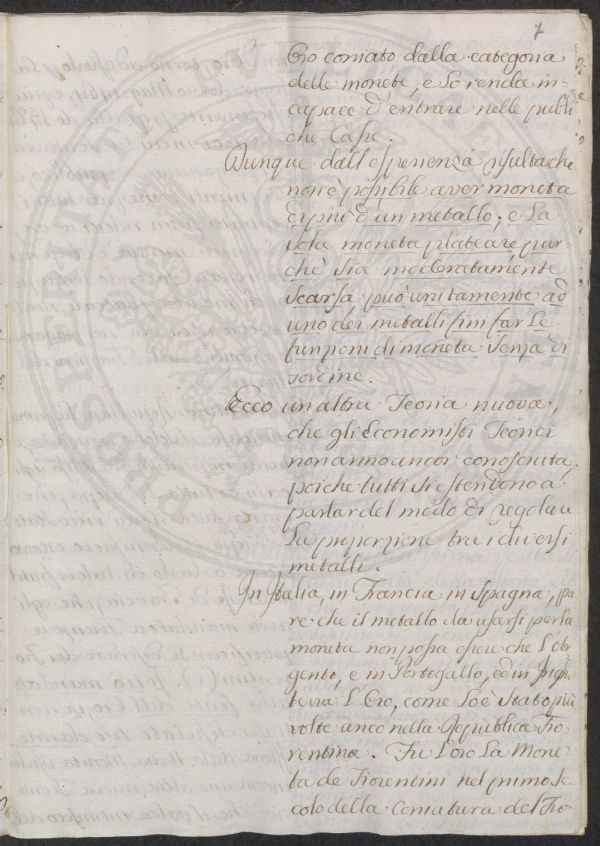 7
Oro coniato dalla categoria
delle monete, e lo renda in=
capace d'entrare nelle publi
che Casse.
Dunque dall'esperienza risulta che
non è possibile aver moneta
di più d'un metallo; e la
sola moneta plateare pur=
chè sia moderatamente
scarsa può unitamente ad
uno dei metalli fini far le
funzioni di moneta senza di
sordine.
Ecco un altra Teoria nuova,
che gli Economisti Teorici
non anno ancor conosciuta,
poiche tutti si estendono a
parlar del modo di regolar
la proporzione tra i diversi
metalli.
In Italia, in Francia in Spagna, pa
re che il metallo da usarsi per la
moneta non possa essere che l'Ar
gento, e in Portogallo, ed in Inghil
terra l'Oro, come lo è stato più
volte anco nella Republica Fio
rentina. Fu l'oro la Mone=
ta de Fiorentini nel primo Se
colo della Coniatura del Fio